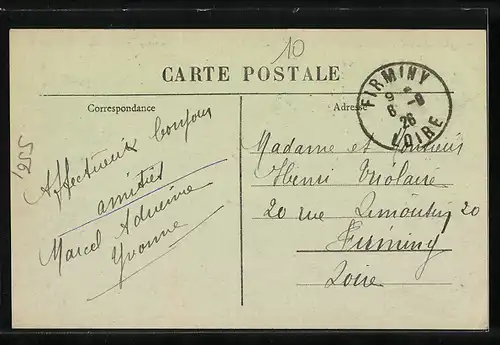 10
CARTE POSTALE
Correspondance
Adresse
FIRMINY
9 -
6 -8
26
LOIRE
Affectueux bonjour
amitiés
Marcel
Yvonne
Madame et Monsieur
Henri
20 rue 20
Firminy
Loire